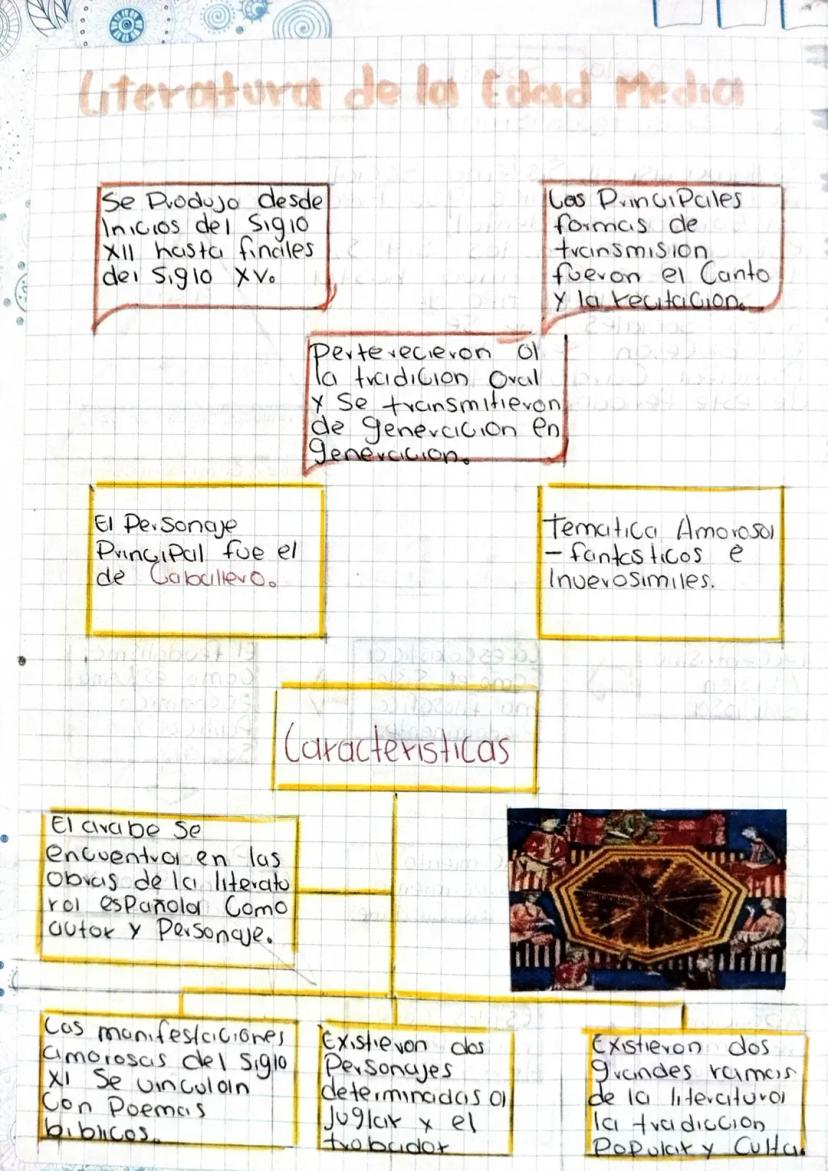 Literatura de la Edad Media
Se Produjo desde
Inicios del Siglo
XII hasta finales
del Siglo XV.
Las Principales
formas de
transmision
fueron el Canto
Y la recitacion.
Perterecieron a
la tradicion Oral
Y Se transmitieron
de generacion en
generacion.
El Personaje
Principal fue el
de Caballero.
Tematica Amorosa
- fantasticos e
Inverosimiles.
Caracteristicas
El arabe Se
encuentra en las
Obras de la literato
ra española Como
autor y Personaje.
Las manifestaciones
amorosas del Siglo
XI Se vinculan
Con Poemas
biblicos.
Existieron dos
Personajes
determinadas a
Juglar y el
trobador
Existieron dos
grandes ramas
de la literatura
la tradiccion
Popular y Culta.